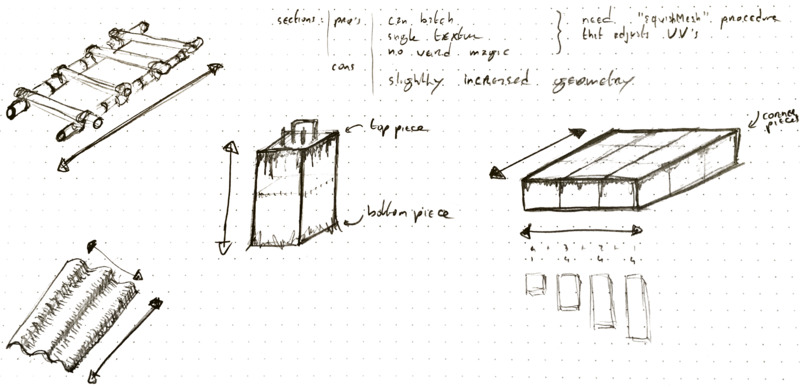 sections: pro's can batch
single textur
no weird magic
need "squishMesh" procedure
that adjusts UV's
cons slightly increased geometry
top piece
bottom piece
corner
pieces